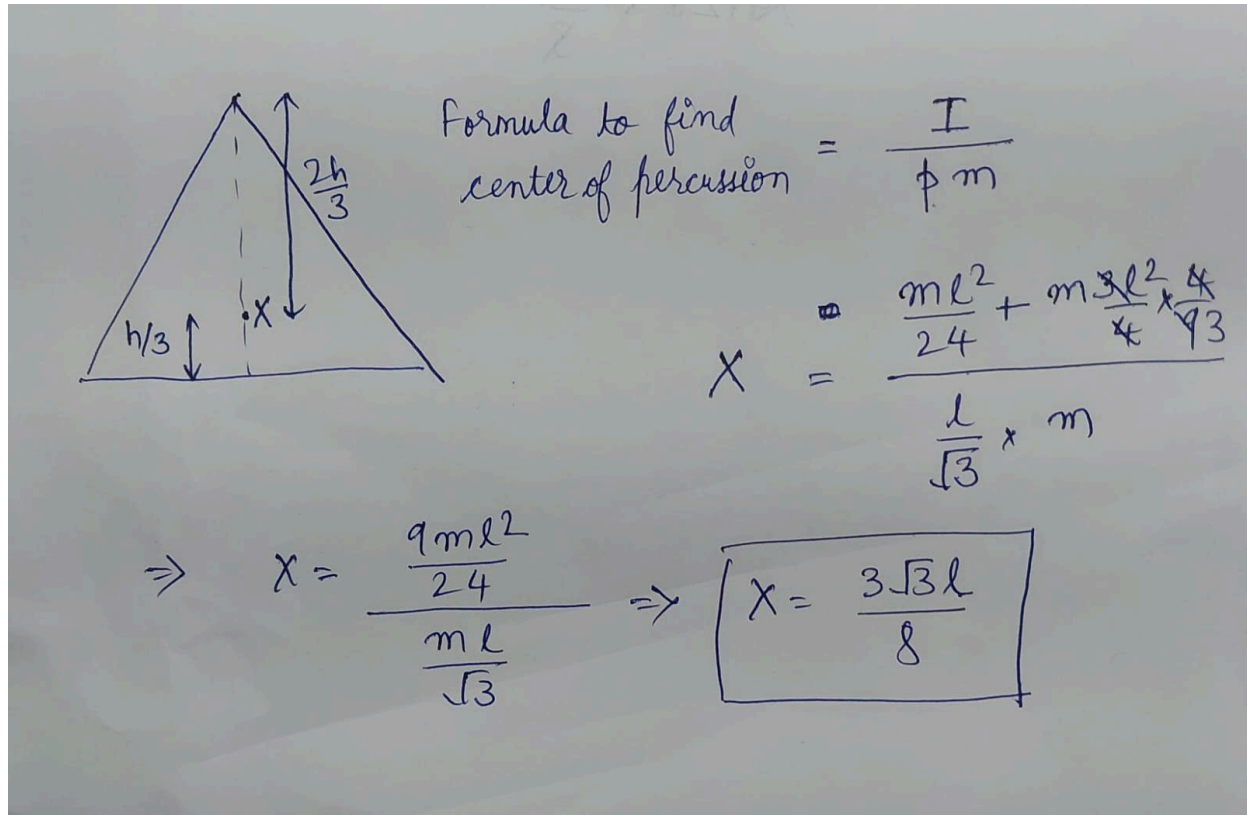 2h/3
h/3
X
Formula to find center of percussion = I / p m
X = (ml²/24 + m3l²/4 × 4/93) / (l/√3 × m)
⇒ X = (9ml²/24) / (ml/√3) ⇒ X = 3√3l/8